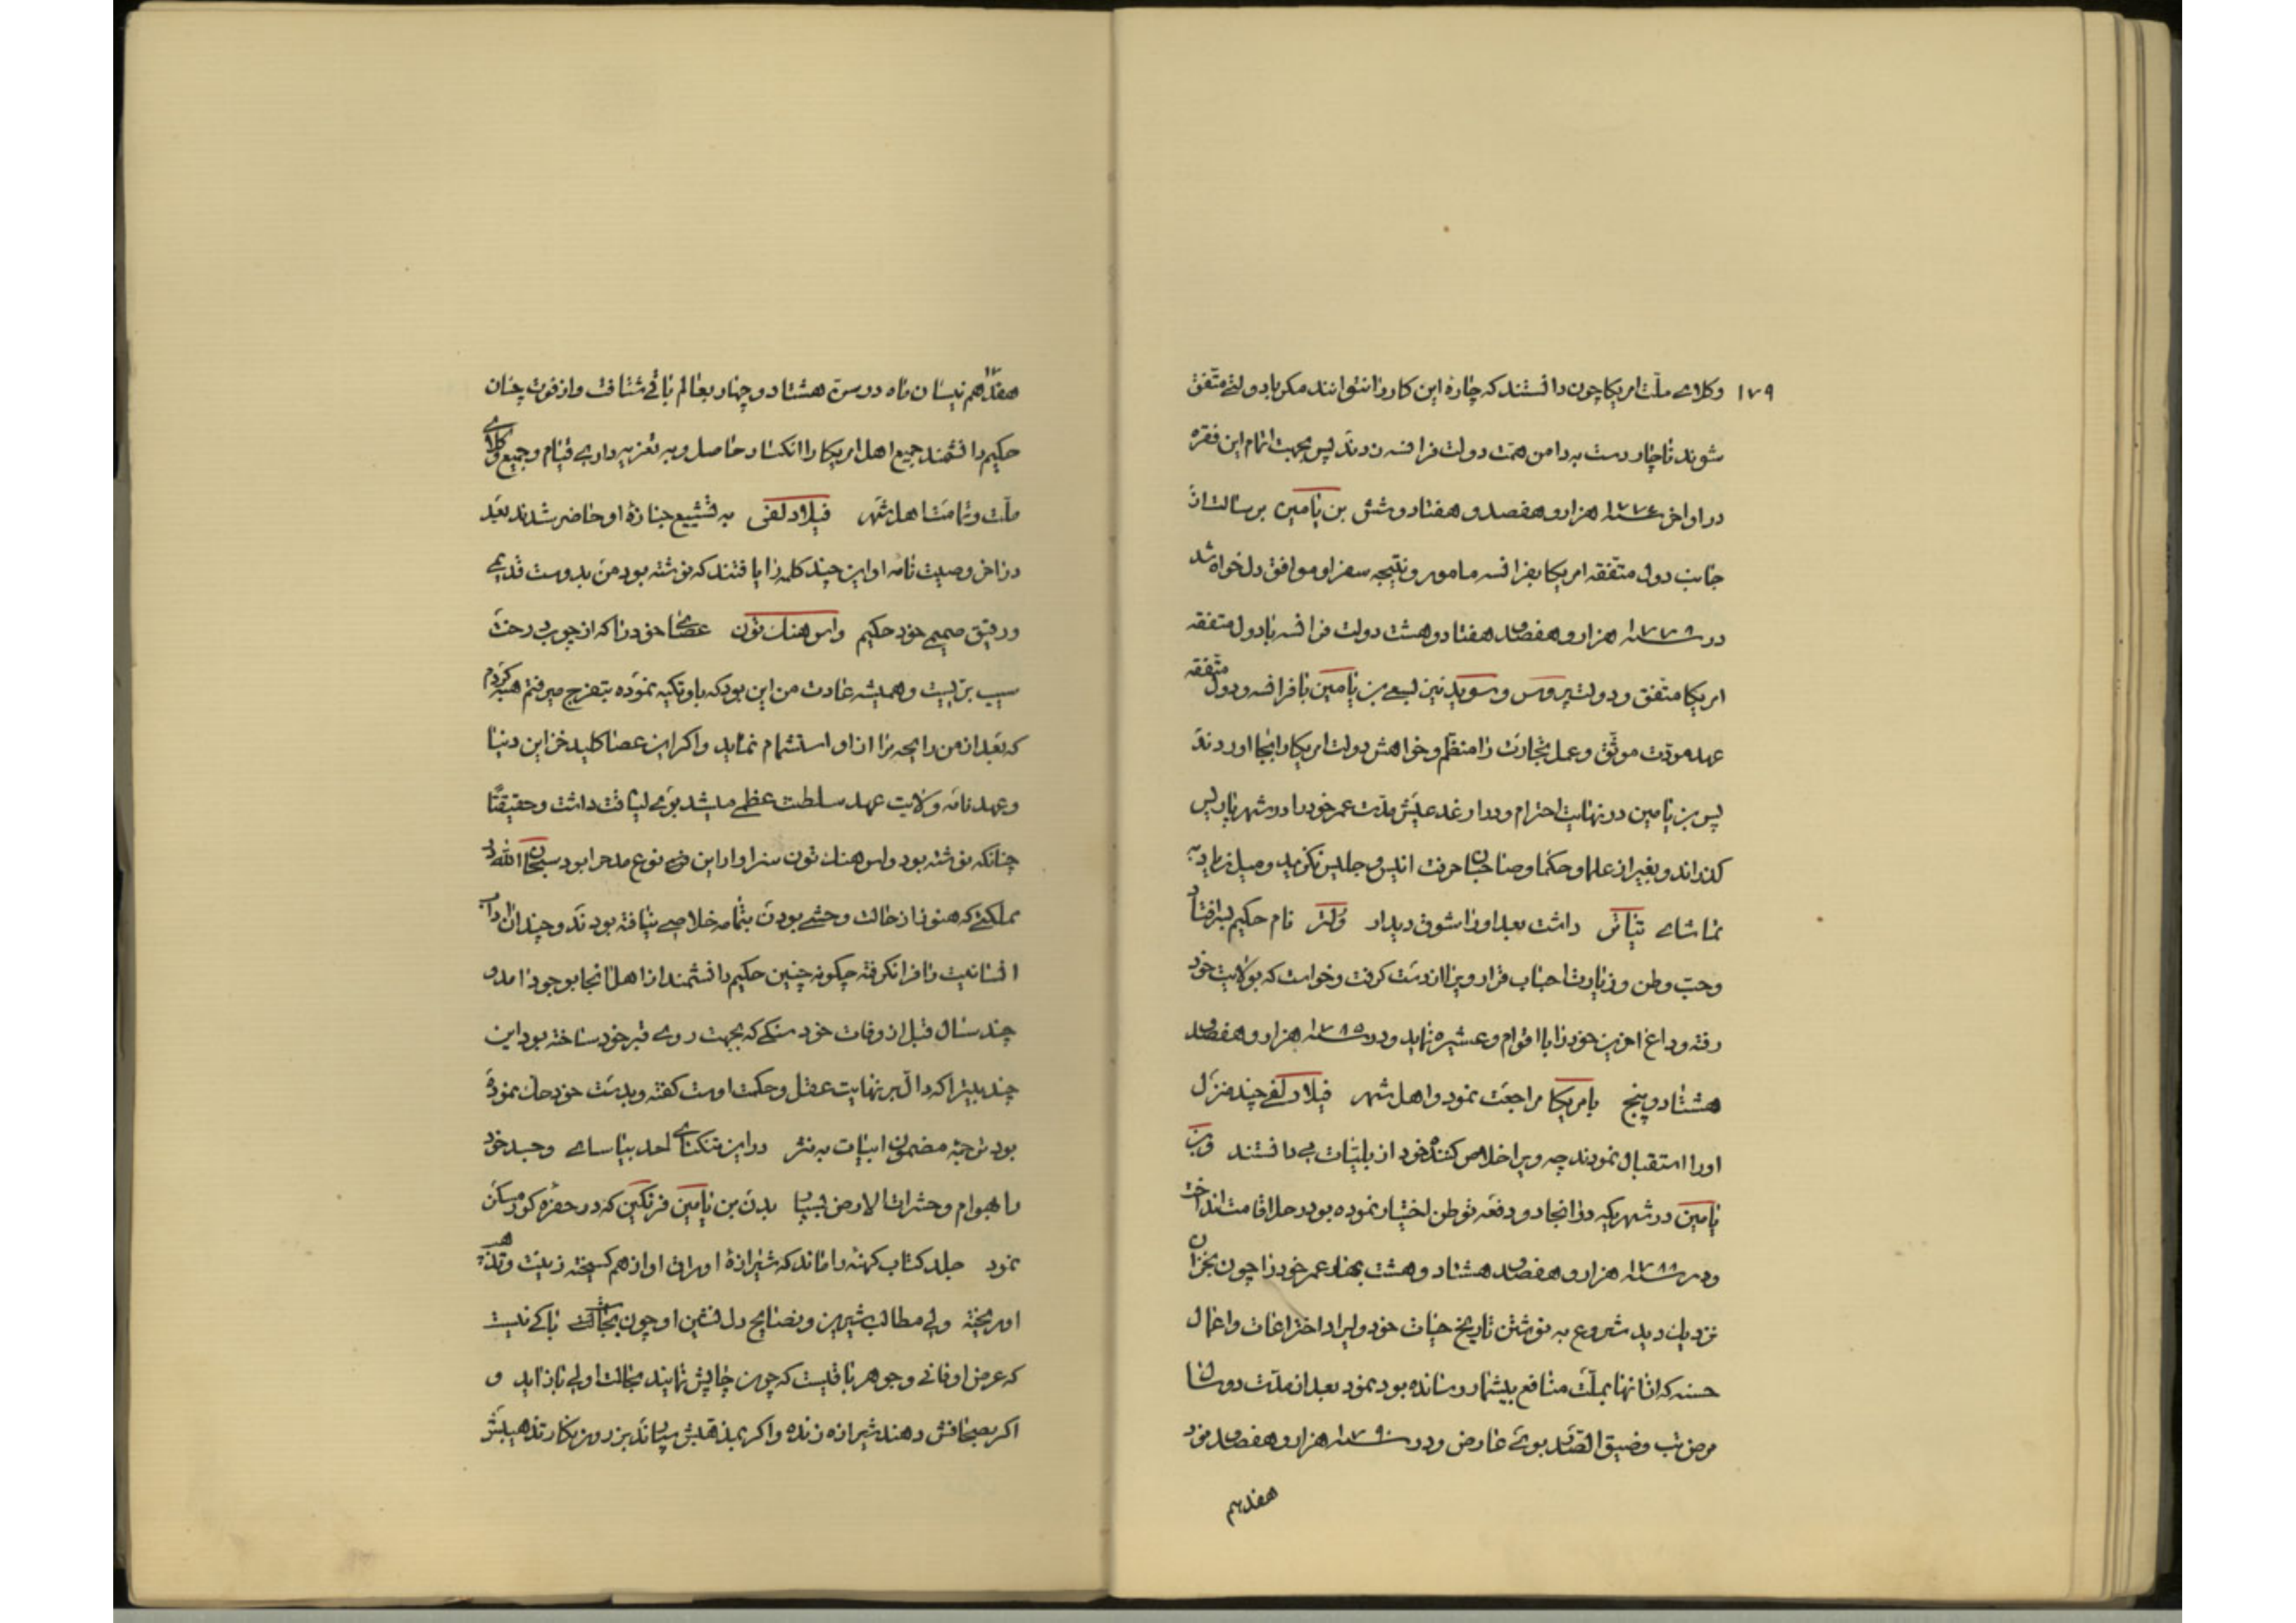 ۱۷۹ وکلای ملّت امریکا چون دانستند که چارهٔ این کار را نتوانند مکر با دولتی متّفق
شوند ناچار دست به دامن همّت دولت فرانسه زدند پس بجهت اتمام این فقره
در اواخر سنه ۱۷۷۶ هزار و هفصد و هفتاد و شش بن یامین برسالت از
جانب دول متّفقه امریکا بفرانسه مامور و نتیجه سفر او موافق دلخواه شد
در سنه ۱۷۷۸ هزار و هفصد و هفتاد و هشت دولت فرانسه با دول متفقه
امریکا متّفق و دولت پروس و سوید نیز بسعی بن یامین با فرانسه و دول متّفقه
عهد مودّت موثّق و عمل تجارت را منظّم و خواهش دولت امریکا را بجا اوردند
پس بن یامین در نهایت احترام و در ارغد عیش مدّت عمر خود را در شهر پاریس
کذراند و بغیر از علما و حکما و صاحبان حرفت انیس و جلیس نکزید و میل زیاد به
تماشای تیاتر داشت بعد او را شوق دیدار ولتر نام حکیم بسر افتاد
وحبّ وطن و زیارت احباب قرار ویرا از دست کرفت و خواست که بولایت خود
رفته وداع اخرین خود را با اقوام و عشیره نماید و در سنه ۱۷۸۵ هزار و هفصد و
هشتاد و پنج بامریکا مراجعت نمود و اهل شهر فیلادلفی چند منزل
او را استقبال نمودند چه ویرا خلاص کننده خود از بلیّات می دانستند و بن
یامین در شهریکه در انجا دو دفعه توطن اختیار نموده بود رحل اقامت انداخت
و در سنه ۱۷۸۸ هزار و هفصد و هشتاد و هشت بهار عمر خود را چون بخزان
نزدیک دید شروع به نوشتن تاریخ حیات خود و ایراد اختراعات و اعمال
حسنه که از انها بملّت منافع بیشمار رسانده بود نمود بعد از مدّت دو سال
مرض تب و ضیق الصّدر بوی عارض و در سنه ۱۷۹۰ هزار و هفصد و نود
هفدهم
هفدهم نیسان ماه در سن هشتاد و چهار بعالم باقی شتافت و از فوت چنان
حکیم دانشمند جمیع اهل امریکا را انکسار حاصل و به تعزیه داری قیام و جمیع وکلای
ملّت و تمامت اهل شهر فیلادلفی به تشییع جنازهٔ او حاضر شدند بعد
در اخر وصیت نامه او این چند کلمه را یافتند که نوشته بود من بدوست قدیمی
و رفیق صمیمی خود حکیم واس هنک تون عصای خود را که از چوب درخت
سیب بریست و همیشه عادت من این بود که باو تکیه نموده بتفرج میرفتم هبه کردم
که بعد از من رایحه مرا از او استشمام نماید و اکر این عصا کلید خزاین دنیا
و عهد نامه ولایت عهد سلطنت عظمی میشد بوی لیاقت داشت و حقیقتًا
چنانکه نوشته بود واس هنک تون سزاوار این نوع مدح را بود سبحان الله در
مملکتی که هنوز از حالت وحشی بودن بتمامه خلاصی نیافته بودند و چندان اداب
انسانیت را فرا نکرفته چکونه چنین حکیم دانشمند از اهل انجا بوجود امد و
چند سال قبل از وفات خود سنکی که بجهت روی قبر خود ساخته بود این
چند بیت را که دالّ بر نهایت عقل و حکمت اوست کفته و بدست خود حک نموده
بود ترجمهٔ مضمون ابیات به نثر در این تنکنای لحد بیاسای و جسد خود
را بهوام و حشرات الارض بسپا بدن بن یامین فرنکلین که در حفره کور مسکن
نمود جلد کتاب کهنه را ماند که شیرازهٔ اوراق او از هم کسیخته زینت و تذهیب
او ریخته ولی مطالب شیرین و نصایح دل نشین او چون بجاست باکی نیست
که عرض او فانی و جوهر باقیست که چون چاپش نمایند بحالت اولی باز اید و
اکر بصحافش دهند شیرازه زنده و اکر بمذهبش سپارند بزر و زنکار تذهیبش